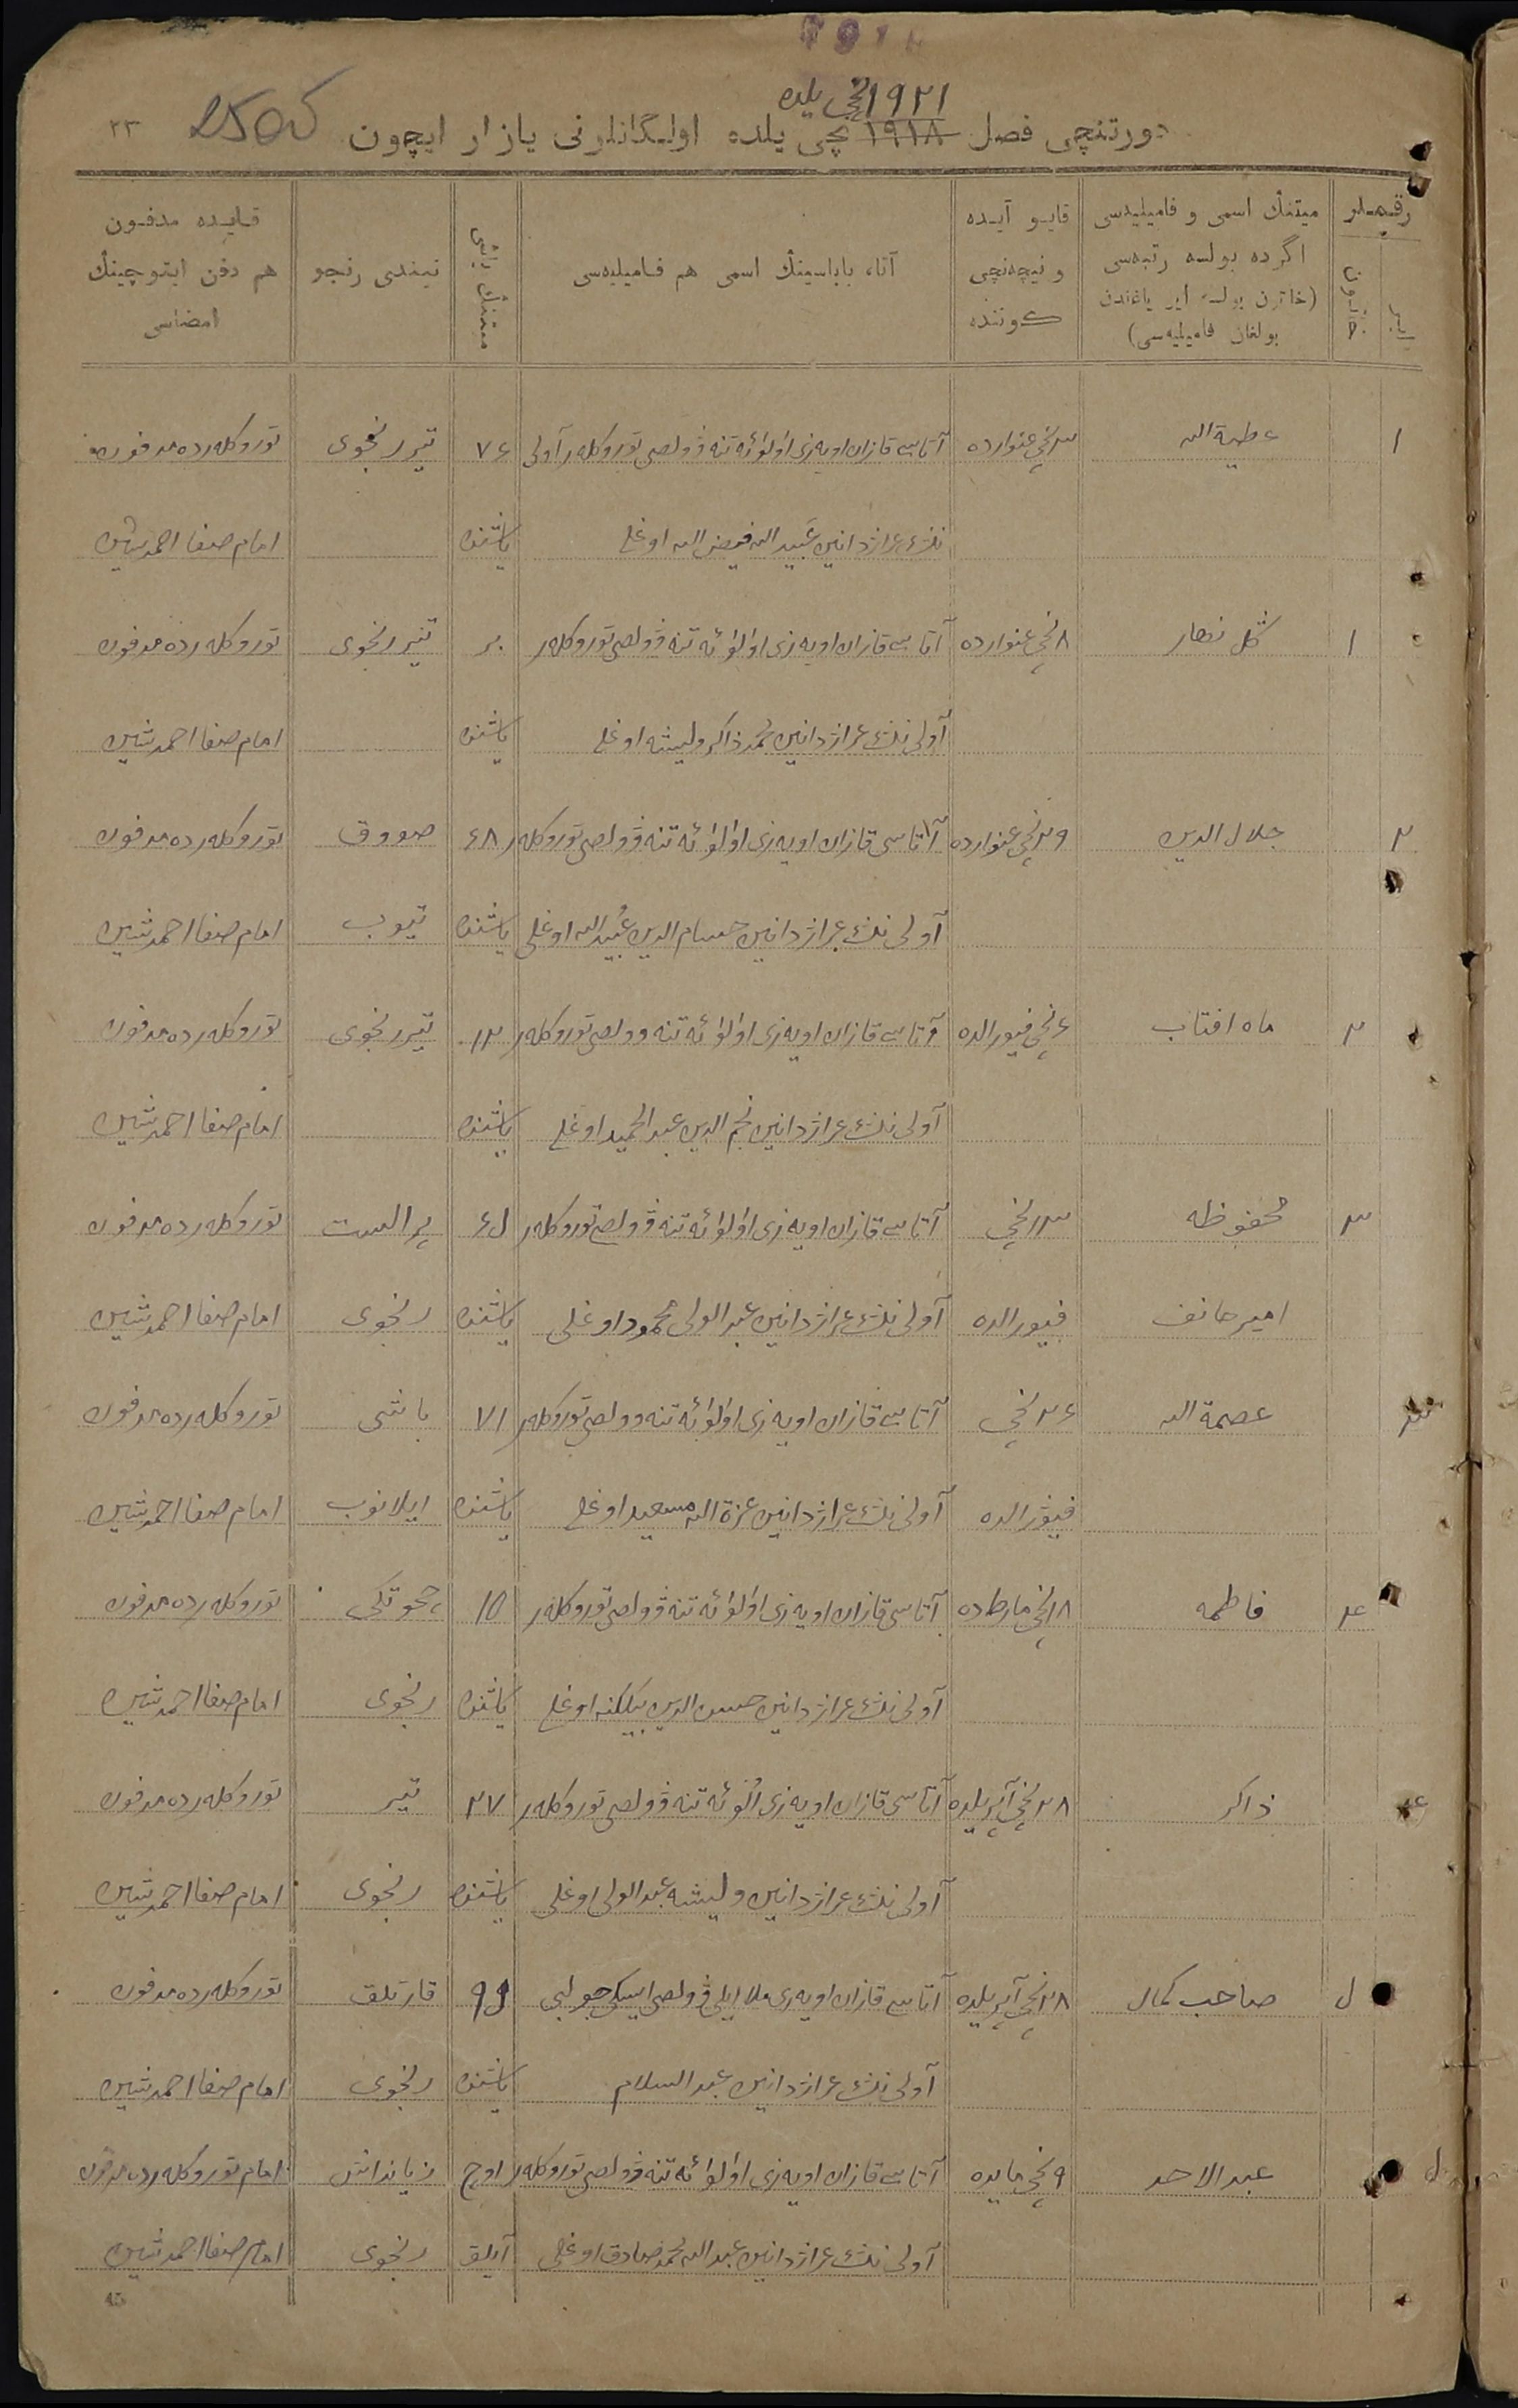 ١٩٢١ نچی یلده
دورتنچی فصل ١٩١٨ نچی یلده اولگانلرنی یازار ایچون
٢٣
رقمـلر
میتنڭ اسمی و فامیلیه‌سی اگرده بولسه رتبه‌سی (خاتون بولسه ایر یاغندن بولغان فامیلیه‌سی)
قایو آیده و نیچه‌نچی کوننده
آتا، باباسینڭ اسمی هم فامیلیه‌سی
میتنڭ یاشی
نیندی رنجو
قایده مدفون هم دفن ایتوچینڭ امضاسی
١ عطیة الله ٣ نچی غنوارده آتاسی قازان اویه‌زی اولوئه‌تنه ڤولصی توروکله‌ر آولی ٧٤ تیر رنجوی توروکله‌رده مدفون
ننڭ غراژدانین عبید الله فیض الله اوغلی یاشنده امام صفا احمد شین
١ گل نهار ٨ نچی غنوارده آتاسی قازان اویه‌زی اولوئه‌تنه ڤولصی توروکله‌ر بر تیر رنجوی توروکله‌رده مدفون
آولی ننڭ غراژدانین محمد ذاکر ولیشه اوغلی یاشنده امام صفا احمد شین
٢ جلال الدین ٢٩ نچی غنوارده آتاسی قازان اویه‌زی اولوئه‌تنه ڤولصی توروکله‌ر ٤٨ صووق توروکله‌رده مدفون
آولی ننڭ غراژدانین حسام الدین عبید الله اوغلی یاشنده تیوب امام صفا احمد شین
٢ ماه افتاب ٤ نچی فیورالده آتاسی قازان اویه‌زی اولوئه‌تنه وولصی توروکله‌ر ١٢ تیر رنجوی توروکله‌رده مدفون
آولی ننڭ غراژدانین نجم الدین عبد الحمید اوغلی یاشنده امام صفا احمد شین
٣ محفوظه ١٣ نچی آتاسی قازان اویه‌زی اولوئه‌تنه ڤولصی توروکله‌ر توروکله‌رده مدفون
فیورالده آولی ننڭ غراژدانین عبد الولی محمود اوغلی یاشنده رنجوی امام صفا احمد شین
٣ عصمة الله ٢٤ نچی آتاسی قازان اویه‌زی اولوئه‌تنه وولصی توروکله‌ر ٧١ باشی توروکله‌رده مدفون
فیورالده آولی ننڭ غراژدانین عزة الله سعید اوغلی یاشنده ایلانوب امام صفا احمد شین
٤ فاطمه ١٨ نچی مارطاده آتاسی قازان اویه‌زی اولوئه‌تنه ڤولصی توروکله‌ر ١٥ توروکله‌رده مدفون
آولی ننڭ غراژدانین یاشنده رنجوی امام صفا احمد شین
٤ ذاکر ٢٨ نچی آپریلده آتاسی قازان اویه‌زی الوئه‌تنه ڤولصی توروکله‌ر ٢٧ تیر توروکله‌رده مدفون
آولی ننڭ غراژدانین ولیشه عبد الولی اوغلی یاشنده رنجوی امام صفا احمد شین
صاحب کمال ٢٨ نچی آپریلده آتاسی قازان اویه‌زی ڤولصی قارتلق توروکله‌رده مدفون
آولی ننڭ غراژدانین عبد السلام یاشنده رنجوی امام صفا احمد شین
عبد الاحد ٩ نچی مایده آتاسی قازان اویه‌زی اولوئه‌تنه ڤولصی توروکله‌ر اوچ زیانداش امام توروکله‌رده مدفون
آولی ننڭ غراژدانین عبد الله محمد صادق اوغلی آیلق رنجوی امام صفا احمد شین